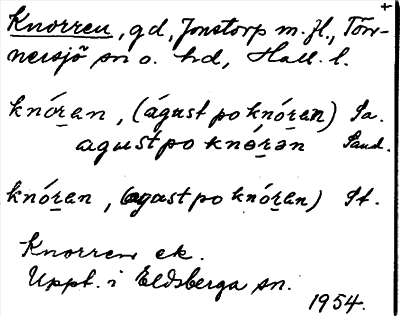 Knorren, gd, Jonstorp m. fl., Tön-
nersjö sn o. hd, Hall. l.
knóran, (águst po knóran) Sa.
agust po knəran Sand.
knóran, (agust po knóran) St.
Knorren ek.
Uppt. i Eldsberga sn.
1954.